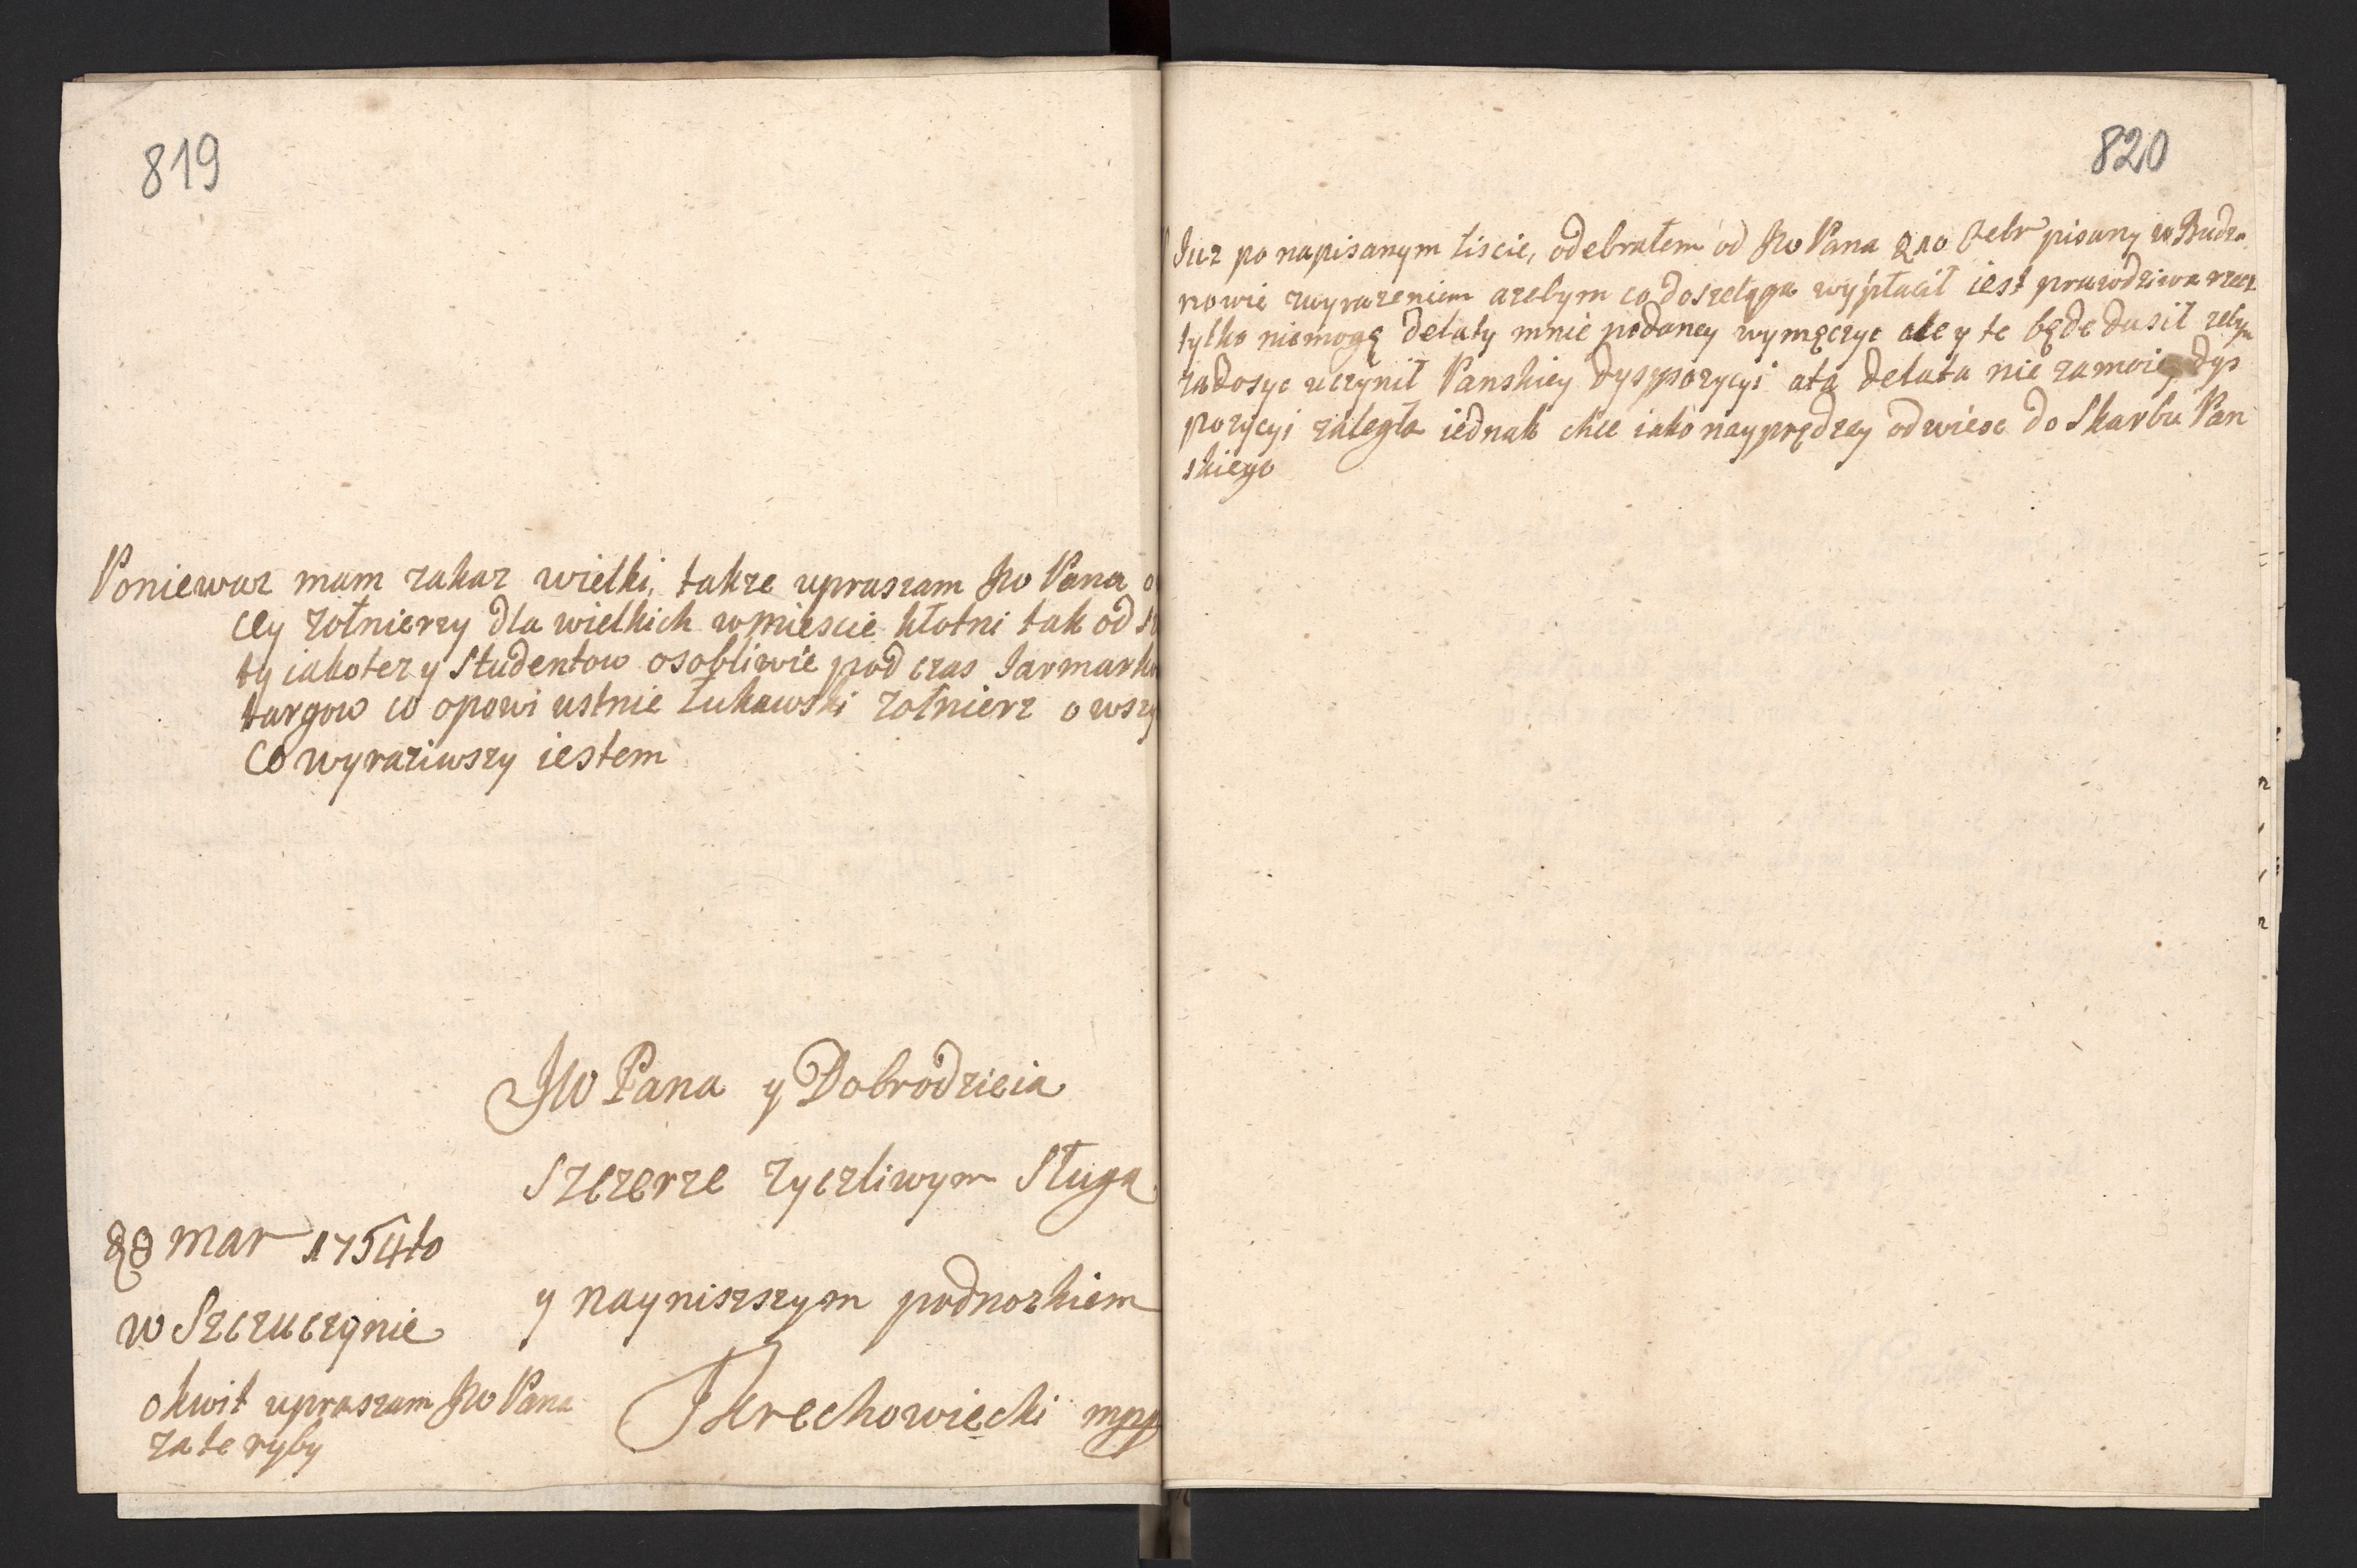 819
Poniewaz mam zakaz wielki, takze upraszam JW Pana o
cey zołnierzy dla wielkich wmiescie kłotni tak od
ty iakotez y Studentow osobliwie pod czas Jarmark
targow co opowi ustnie Łukawski zołnierz o wszy
co wyraziwszy iestem
JW Pana y Dobrodzieia
szczerze zyczliwym Sługą
y nayniszszym podnozkiem
28 mar 1754to
w Szczuczynie
okwit upraszam JW Pana
za te ryby
JKrechowiecki mpp
820
Juz po napisanym liscie, odebrałem od JW Pana 210 Febr pisany w Budza
nowie zwyrazeniem azebym co doszeląga wypłacił iest prawdziwa rzecz
tylko niemogę delaty mnie podaney wymęczyc ale y te będe dusił zebym
zadosyc uczynił Panskiey dysppozycyi ata delata nie zamoią dys
pozycyi zaległa iednak chce iako nayprędzey odwiesc do Skarbu Pan
skiego